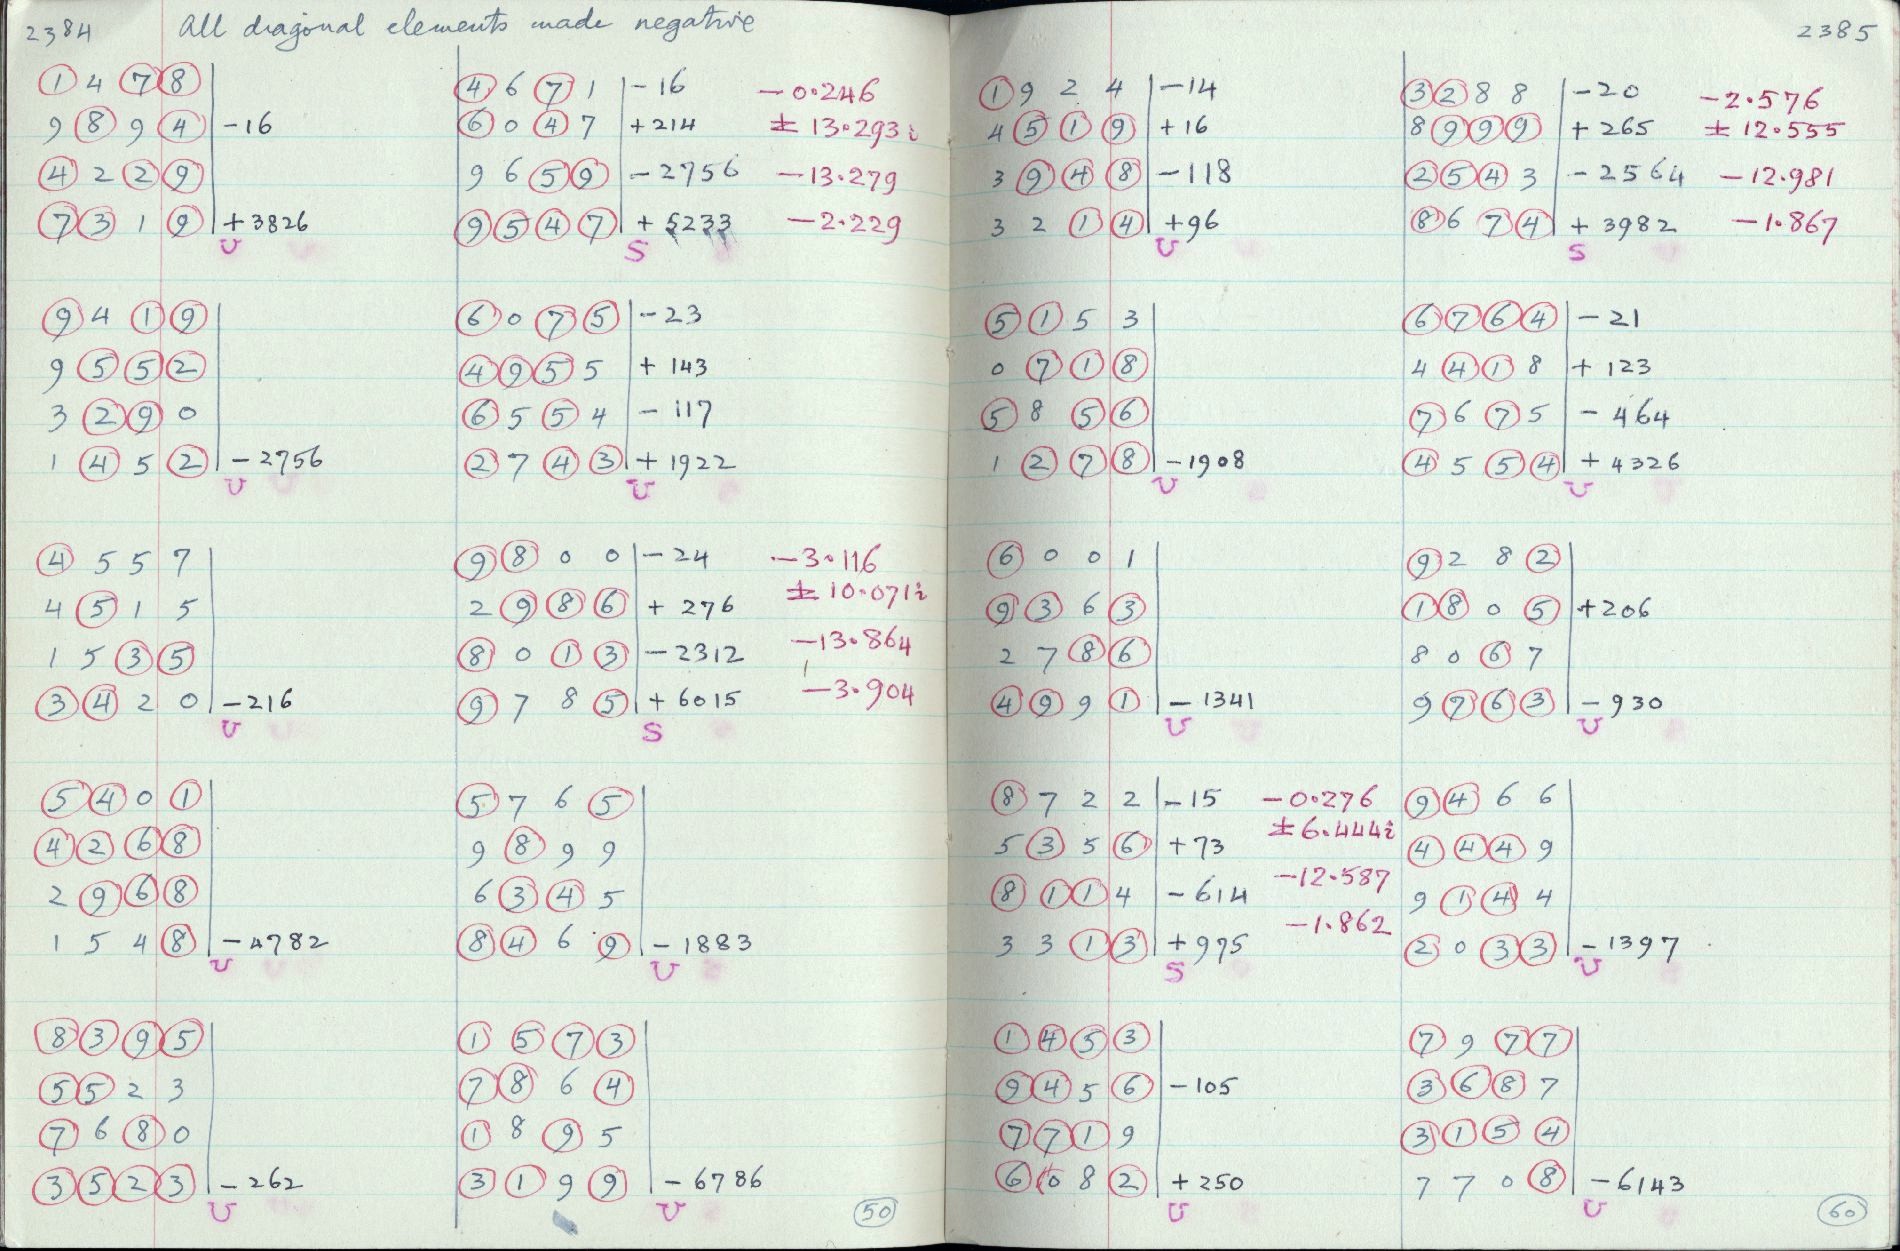 2384 All diagonal elements made negative
1 4 7 8
9 8 9 4 -16
4 2 2 9
7 3 1 9 +3826
U
4 6 7 1 -16 -0.246
6 0 4 7 +214 ± 13.293i
9 6 5 9 -2756 -13.279
9 5 4 7 +5233 -2.229
S
9 4 1 9
9 5 5 2
3 2 9 0
1 4 5 2 -2756
U
6 0 7 5 -23
4 9 5 5 +143
6 5 5 4 -117
2 7 4 3 +1922
U
4 5 5 7
4 5 1 5
1 5 3 5
3 4 2 0 -216
U
9 8 0 0 -24 -3.116
2 9 8 6 +276 ± 10.071i
8 0 1 3 -2312 -13.864
9 7 8 5 +6015 -3.904
S
5 4 0 1
4 2 6 8
2 9 6 8
1 5 4 8 -4782
U
5 7 6 5
9 8 9 9
6 3 4 5
8 4 6 9 -1883
U
8 3 9 5
5 5 2 3
7 6 8 0
3 5 2 3 -262
U
1 5 7 3
7 8 6 4
1 8 9 5
3 1 9 9 -6786
U
50
2385
1 9 2 4 -14
4 5 1 9 +16
3 9 4 8 -118
3 2 1 4 +96
U
3 2 8 8 -20 -2.576
8 9 9 9 +265 ± 12.555
2 5 4 3 -2564 -12.981
8 6 7 4 +3982 -1.867
S
5 1 5 3
0 7 1 8
5 8 5 6
1 2 7 8 -1908
U
6 7 6 4 -21
4 4 1 8 +123
7 6 7 5 -464
4 5 5 4 +4326
U
6 0 0 1
9 3 6 3
2 7 8 6
4 9 9 1 -1341
U
9 2 8 2
1 8 0 5 +206
8 0 6 7
9 7 6 3 -930
U
8 7 2 2 -15 -0.276
5 3 5 6 +73 ± 6.444i
8 1 1 4 -614 -12.587
3 3 1 3 +975 -1.862
S
9 4 6 6
4 4 4 9
9 1 4 4
2 0 3 3 -1397
U
1 4 5 3
9 4 5 6 -105
7 7 1 9
6 0 8 2 +250
U
7 9 7 7
3 6 8 7
3 1 5 4
7 7 0 8 -6143
U
60